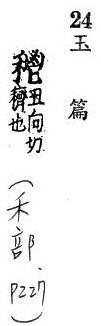 24
玉篇
丑向切
穧也
(禾部、P227)